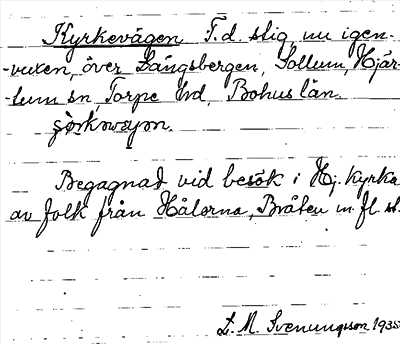 Kyrkevägen F.d. stig nu igen-
-vuxen, över Långsbergen, Sollum, Hjär-
-tum sn, Torpe hd, Bohuslän.
Begagnad vid besök i Hj. kyrka
av folk från Hålorna, Bråten m. fl. st.
L. M. Svenungsson 1935